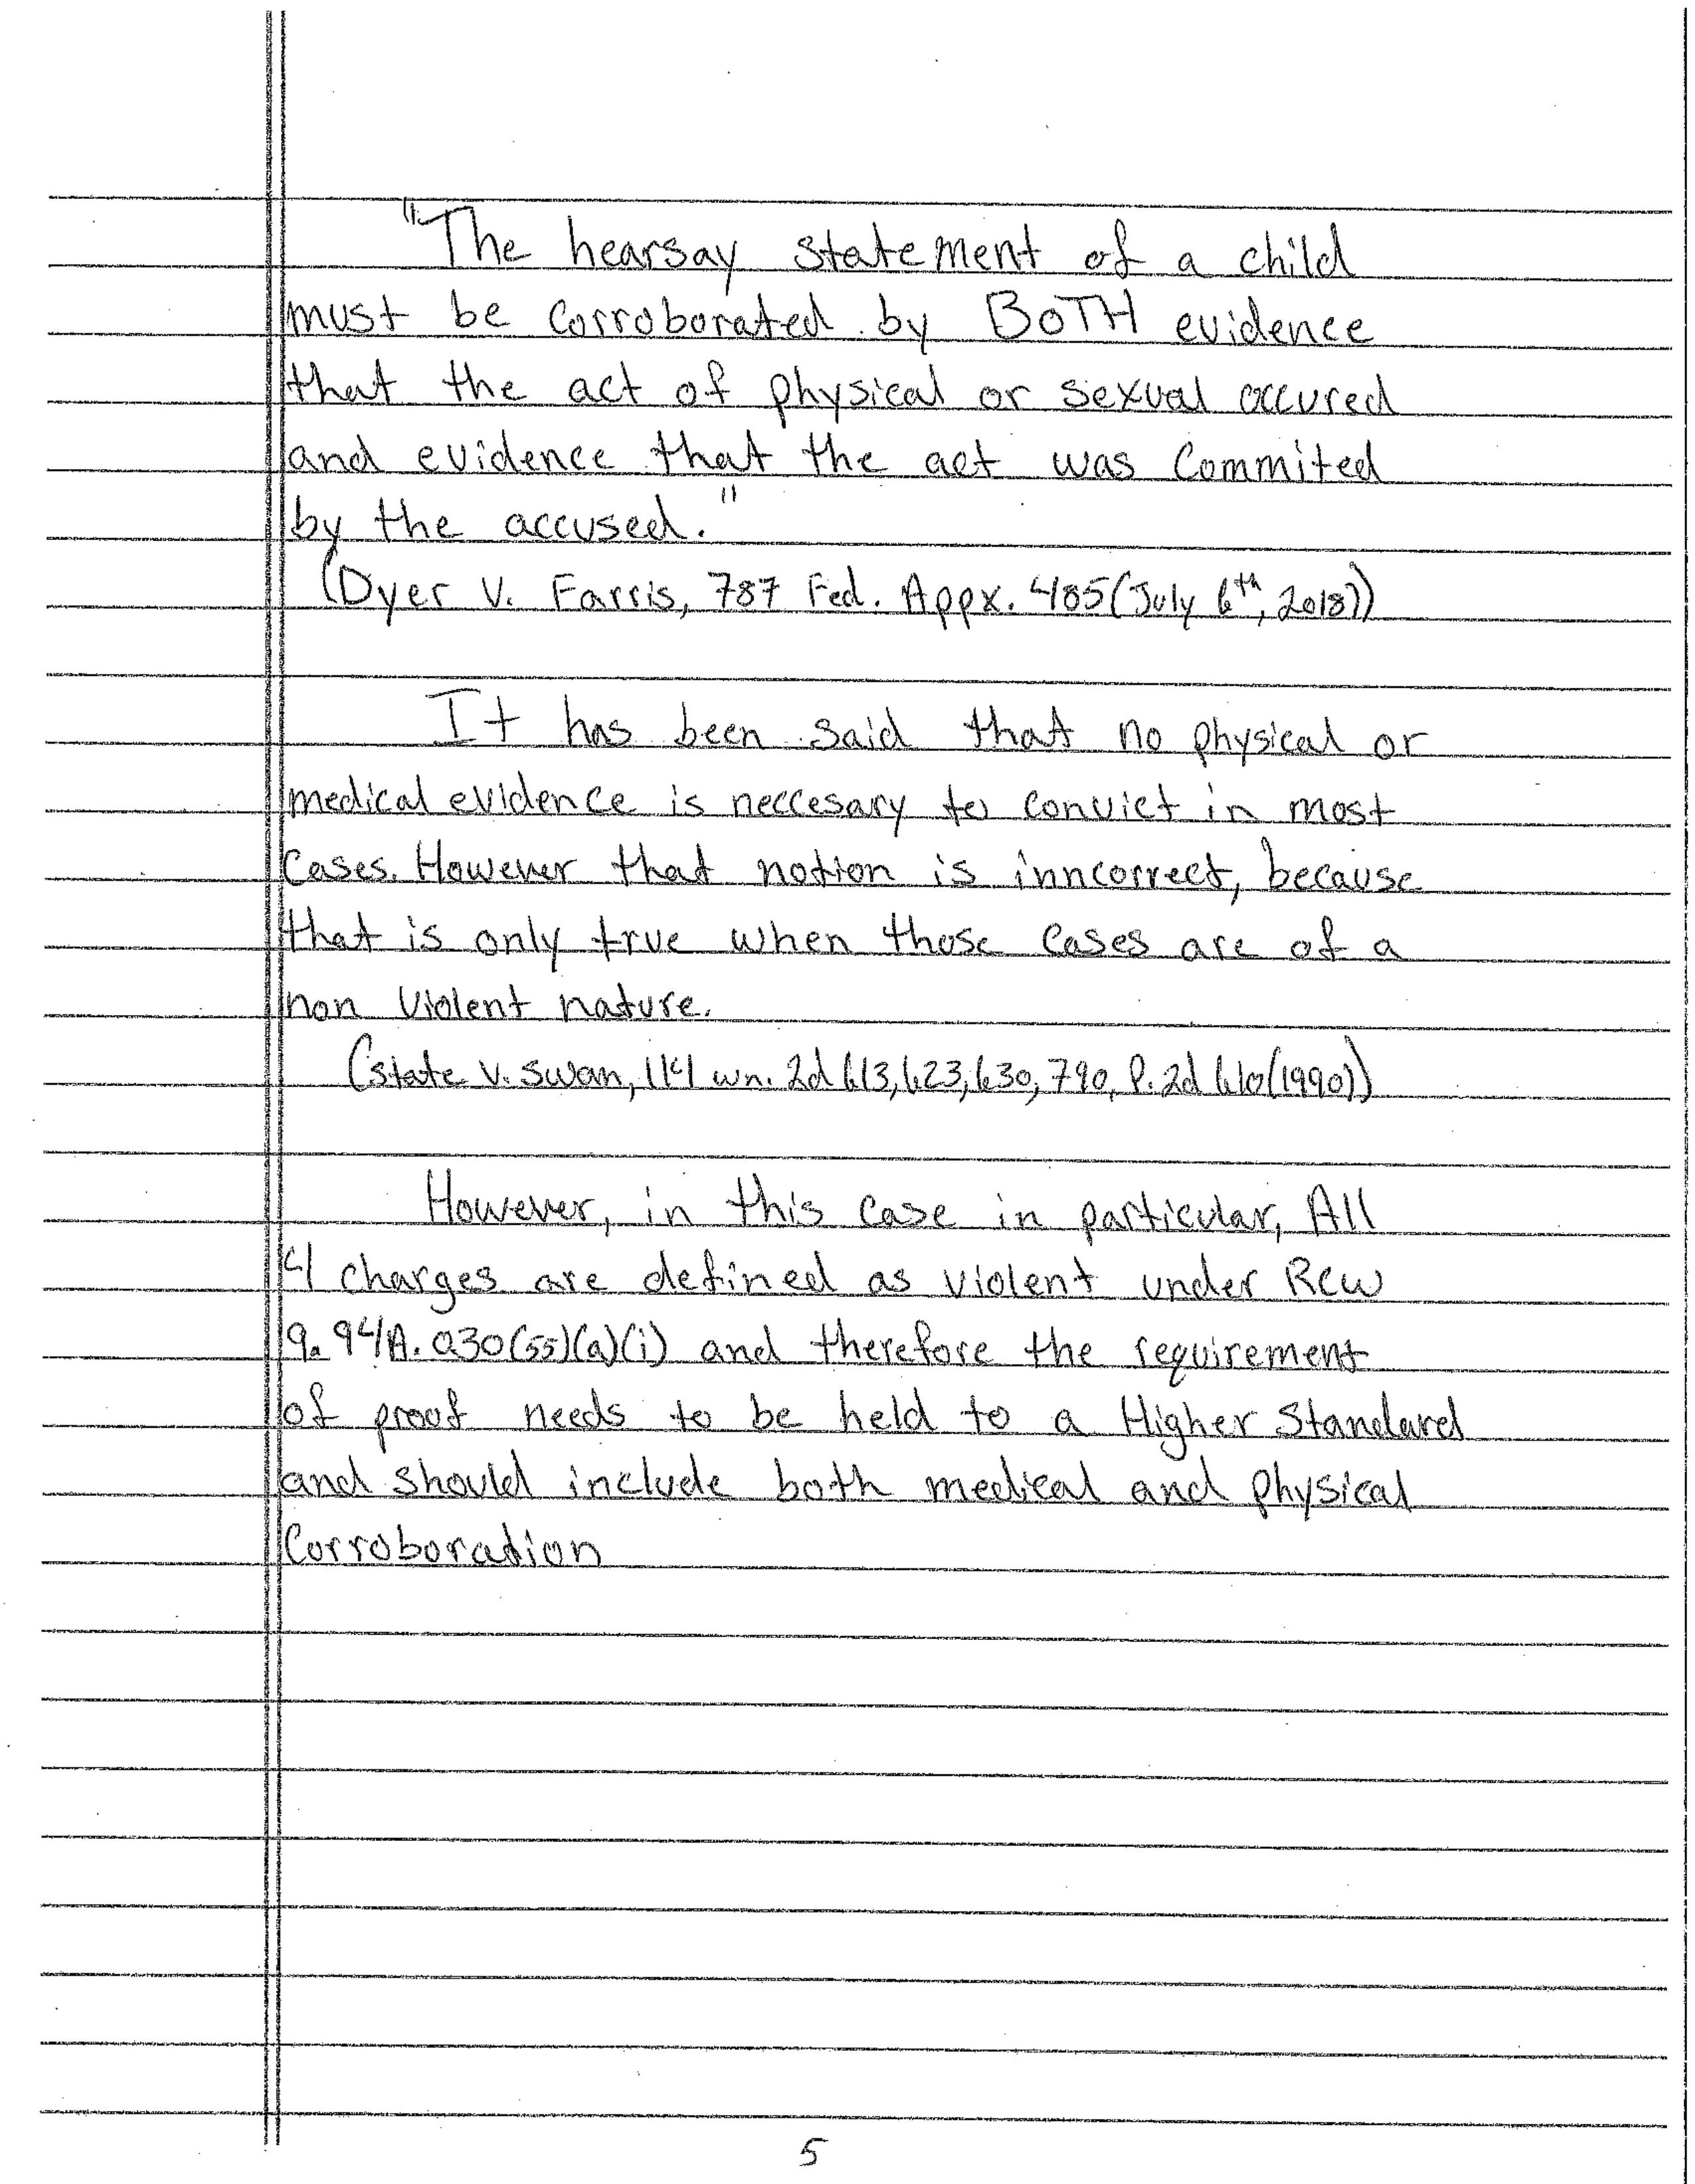 "The hearsay statement of a child
must be corroborated by BOTH evidence
that the act of physical or sexual occured
and evidence that the act was commited
by the accused."
(Dyer v. Farris, 787 Fed. Appx. 485 (July 6th, 2018))
It has been said that no physical or
medical evidence is neccesary to convict in most
cases. However that notion is inncorrect, because
that is only true when those cases are of a
non violent nature.
(state v. swan, 114 wn. 2d 613, 623, 630, 790, P. 2d 610 (1990))
However, in this case in particular, All
4 charges are defined as violent under RCW
9.94A.030(55)(a)(i) and therefore the requirement
of proof needs to be held to a Higher Standard
and should include both medical and physical
Corroboration
5